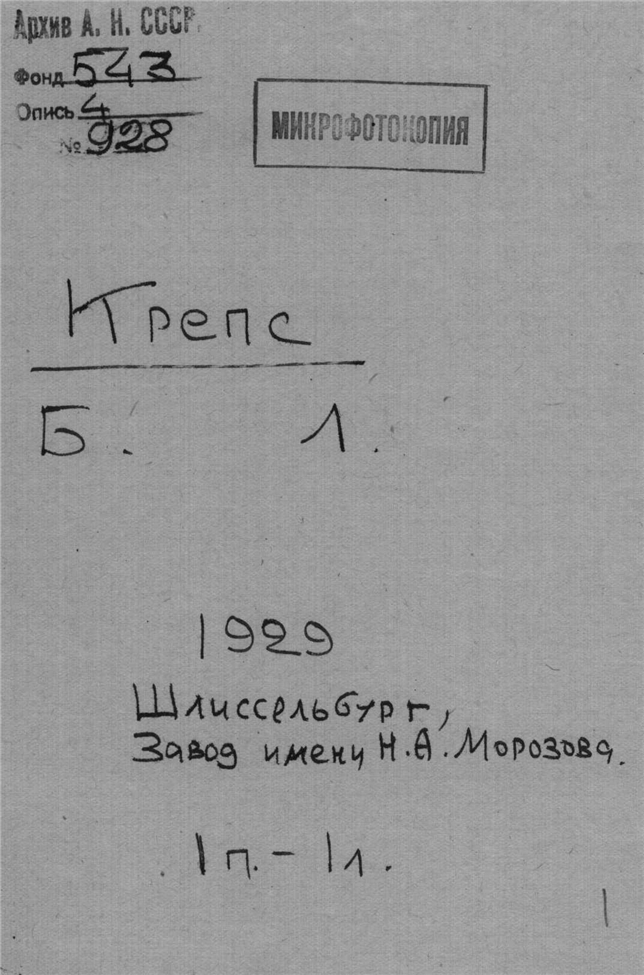 Архив А. Н. СССР.
Фонд 543
Опись 4
№ 928
МИКРОФОТОКОПИЯ
Крепс
Б. Л.
1929
Шлиссельбург,
Завод имени Н.А.Морозова.
1п.-1л.
1